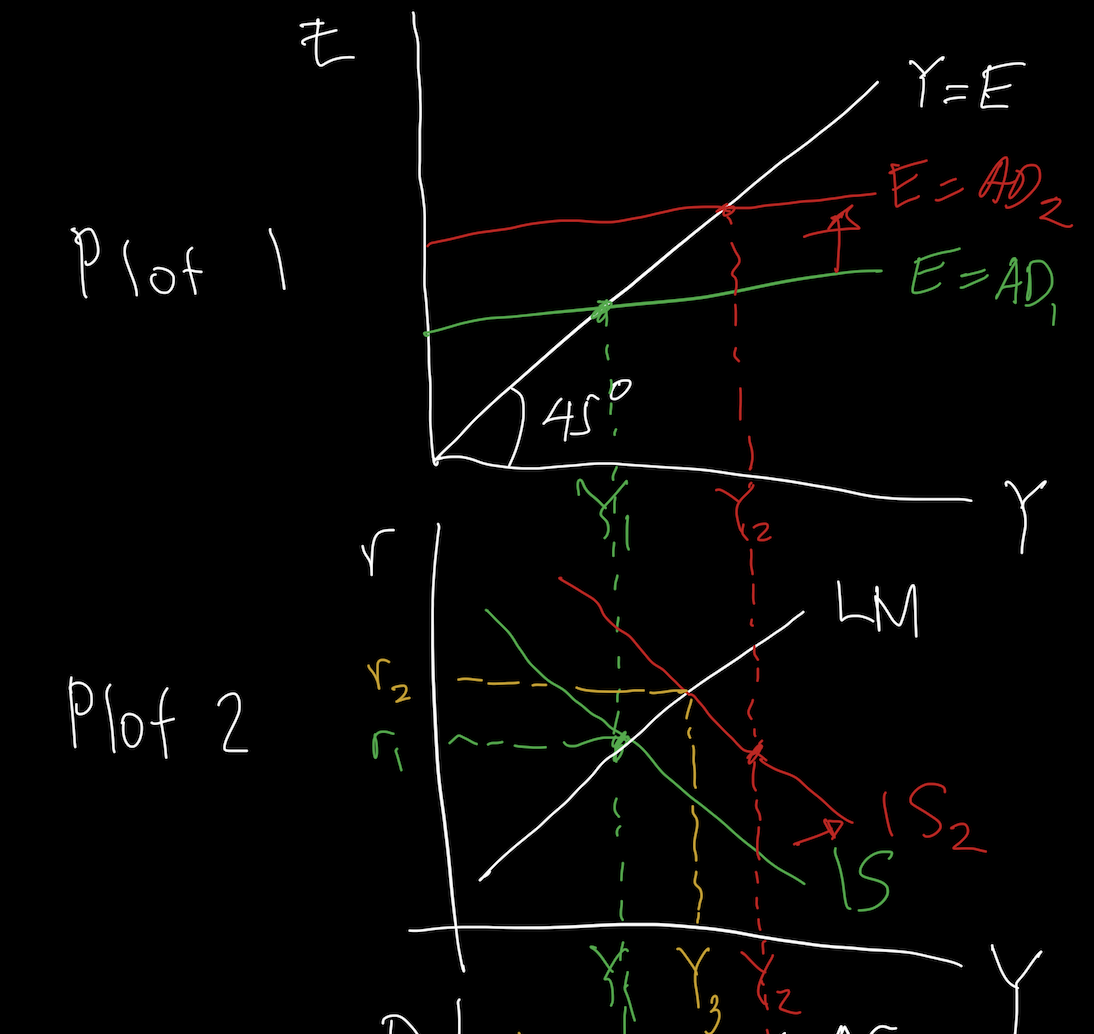 E
Y=E
E=AD2
Plot 1
E=AD1
45°
Y1
Y2
Y
r
LM
r2
Plot 2
r1
IS2
IS
Y1
Y3
Y2
Y
P